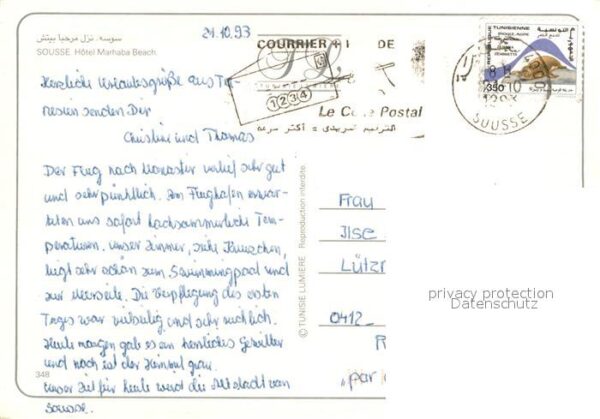 سوسه. نزل مرحبا بيتش
SOUSSE. Hôtel Marhaba Beach.
21.10.93
Herzliche Urlaubsgrüße aus Tu-
nesien senden Dir
Christine und Thomas
Der Flug nach Monastir verlief sehr gut
und sehr pünktlich. Am Flughafen erwar-
teten uns sofort hochsommerliche Tem-
peraturen. Unser Zimmer, siehe Kreuzchen,
liegt sehr schön zum Swimmingpool und
zur Meerseite. Die Verpflegung des ersten
Tages war vielseitig und sehr reichlich.
Heute morgen gab es ein herrliches Gewitter
und noch ist der Himmel grau.
Unser Ziel für heute wird die Altstadt von
Sousse.
348
© TUNISIE LUMIERE Reproduction interdite
COURRIER DE
1234
Le Code Postal
الترقيم البريدي = أكثر سرعة
REPUBLIQUE TUNISIENNE
350
10
SOUSSE
Frau
Ilse
Lütz
0412
"par
privacy protection
Datenschutz